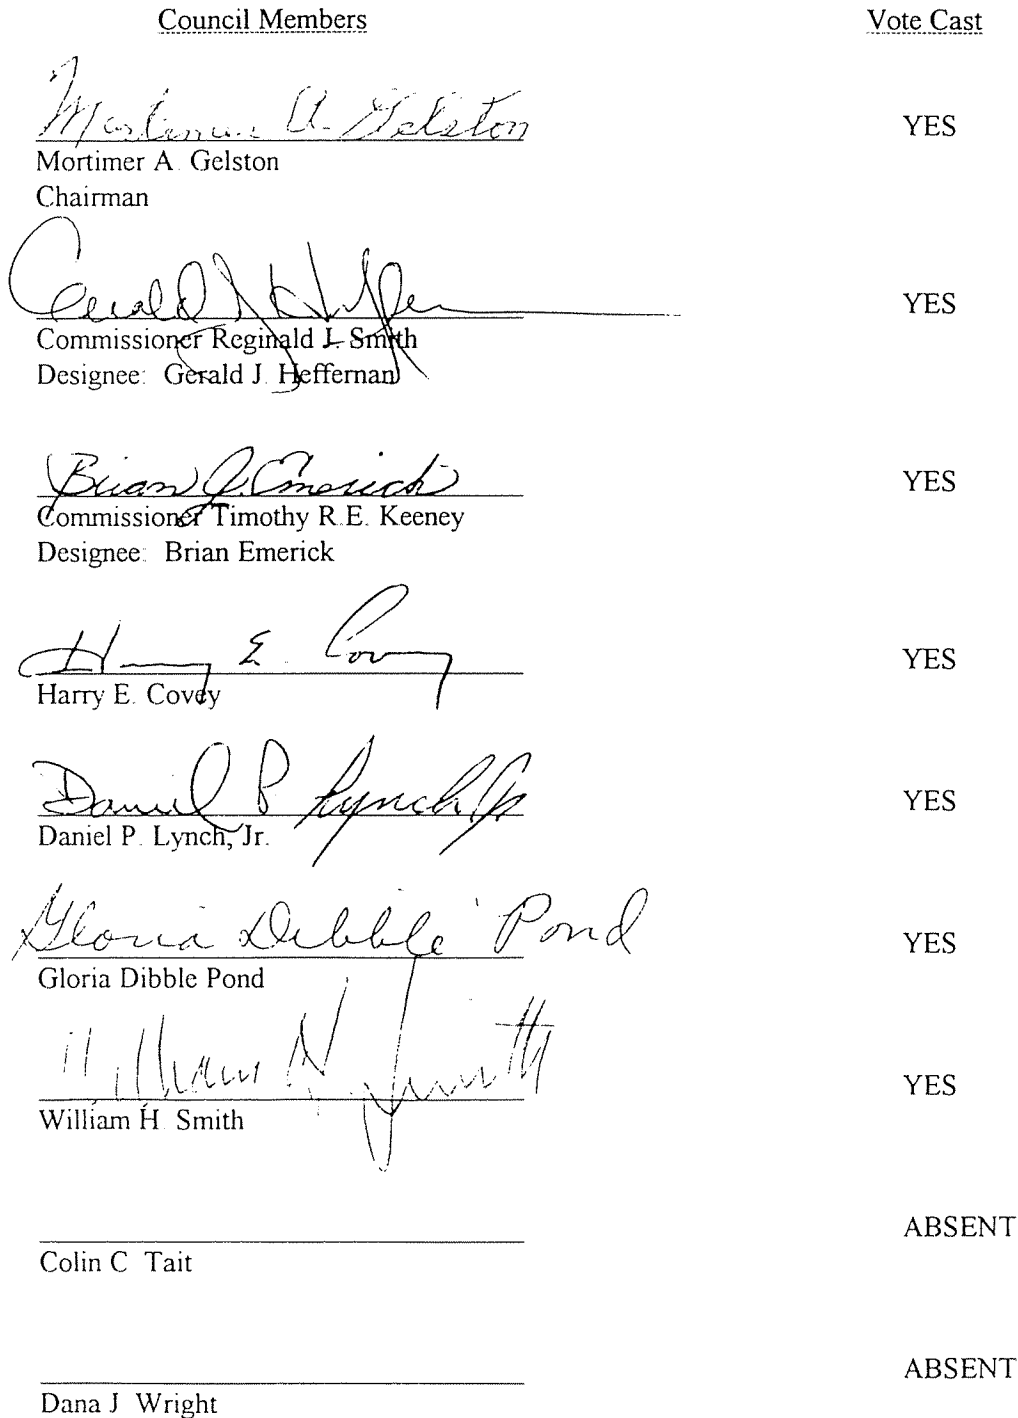 Council Members Vote Cast
Mortimer A. Gelston YES
Mortimer A. Gelston
Chairman
Gerald J. Heffernan YES
Commissioner Reginald J. Smith
Designee: Gerald J. Heffernan
Brian J. Emerick YES
Commissioner Timothy R.E. Keeney
Designee: Brian Emerick
Harry E. Covey YES
Harry E. Covey
Daniel P. Lynch, Jr. YES
Daniel P. Lynch, Jr.
Gloria Dibble Pond YES
Gloria Dibble Pond
William H. Smith YES
William H. Smith
ABSENT
Colin C Tait
ABSENT
Dana J Wright